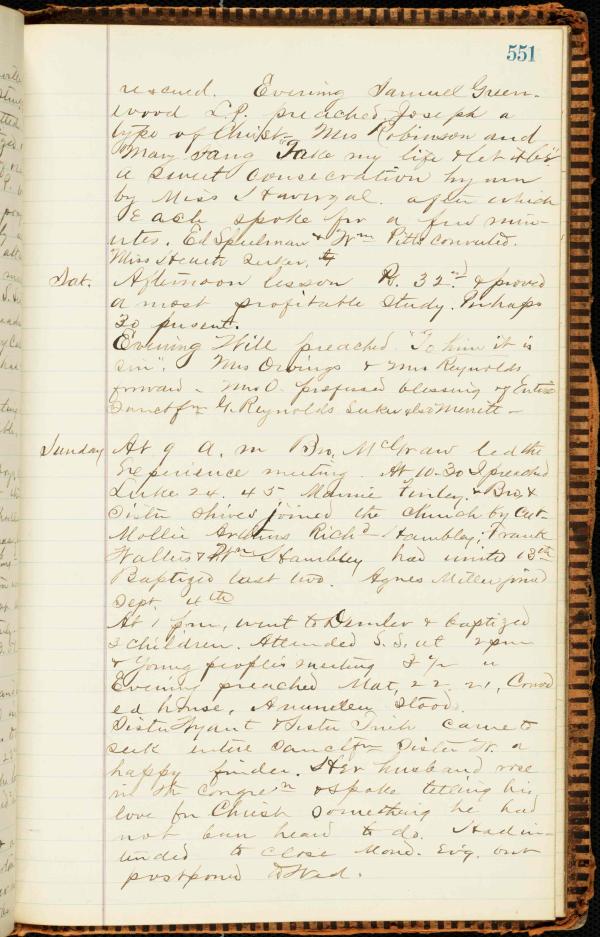 551
rescued. Evening Samuel Green-
wood L.P. preached Joseph a
type of Christ. Mrs Robinson and
Mary sang "Take my life & let it be"
a sweet consecration hymn
by Miss Havergal. after which
Each spoke for a few min-
utes. Ed Spielman & Wm Pitts converted.
Miss Heath seeker.
Sat. Afternoon lesson 32nd & proved
a most profitable study. Perhaps
30 present.
Evening Will preached "To him it is
sin". Mrs Owings & Mrs Reynolds
forward - Mrs O. professed blessing of Entire
Sanctfn G. Reynolds Seeker also Merritt -
Sunday At 9 a.m Bro. McGraw led the
Experience meeting. At 10.30 I preached
Luke 24. 45 Mamie Finley. & Bro. &
Sister Shives joined the Church by Cert.
Mollie Richd Hambley; Frank
Walters & Wm Hambley had united 13th
Baptized last two. Agnes Miller joined
Sept. 4th
At 1 pm, went to & baptized
3 children. Attended S.S. at 2 pm
& Young people's meeting
Evening preached Mat, 22. 21, Crowd
ed house, A number stood.
Sister Wyant & Sister came to
seek entire Sanctfn Sister W. a
happy finder. Her husband rose
in the Congren & spoke telling his
love for Christ Something he had
not been heard to do. Had in-
tended to close Mond. Ev'g. but
postponed to Wed.